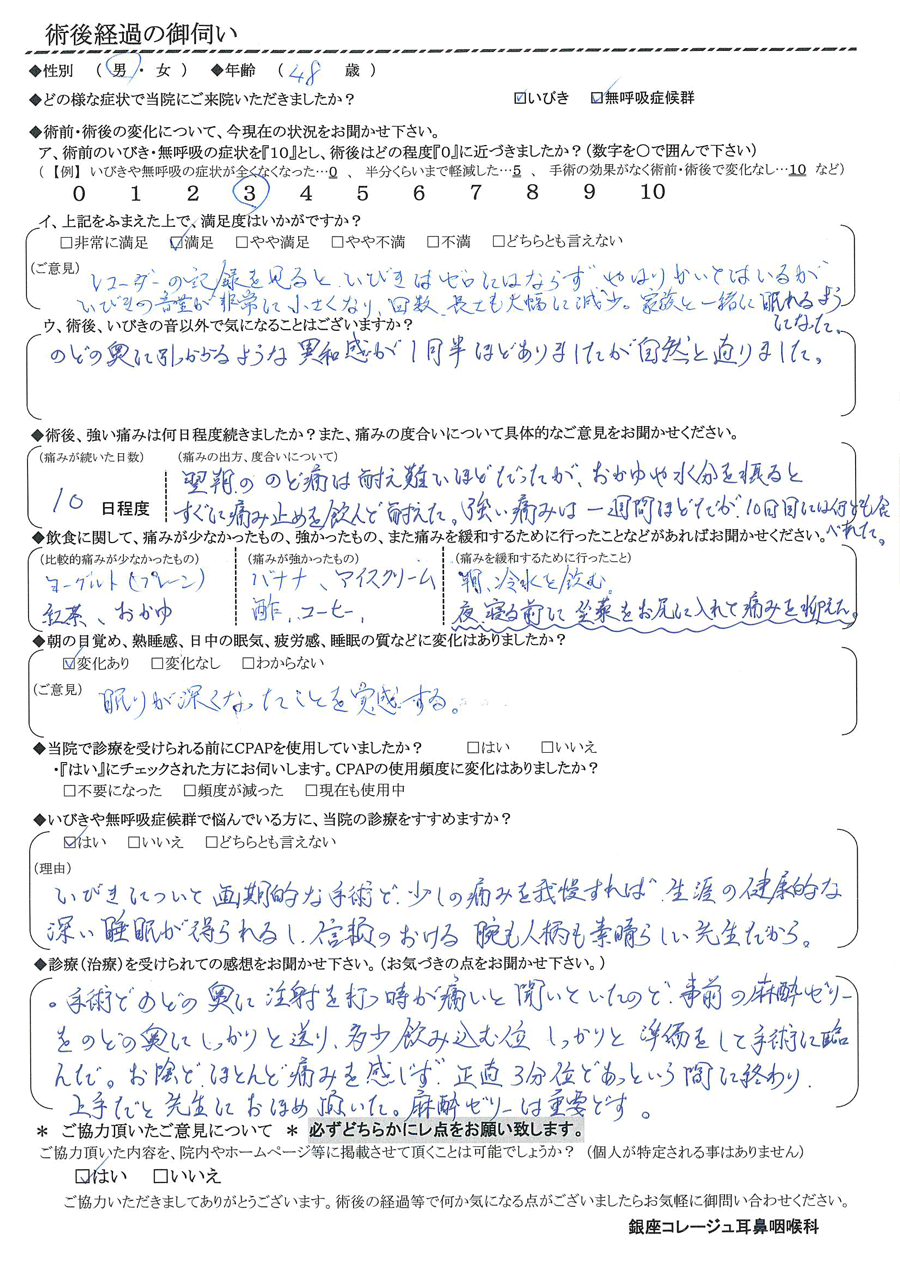 術後経過の御伺い
◆性別 ( 男 ・ 女 ) ◆年齢 ( 48 歳 )
◆どの様な症状で当院にご来院いただきましたか? ☑いびき ☑無呼吸症候群
◆術前・術後の変化について、今現在の状況をお聞かせ下さい。
ア、術前のいびき・無呼吸の症状を『10』とし、術後はどの程度『0』に近づきましたか?(数字を〇で囲んで下さい)
(【例】 いびきや無呼吸の症状が全くなくなった…0 、 半分くらいまで軽減した…5 、 手術の効果がなく術前・術後で変化なし…10 など)
0 1 2 3 4 5 6 7 8 9 10
イ、上記をふまえた上で、満足度はいかがですか?
□非常に満足 ☑満足 □やや満足 □やや不満 □不満 □どちらとも言えない
(ご意見) レコーダーの記録を見ると、いびきはゼロにはならず やはりかいてはいるが
いびきの音量が非常に小さくなり、回数、長さも大幅に減少。家族と一緒に眠れるよう
になった。
ウ、術後、いびきの音以外で気になることはございますか?
のどの奥に引っかかるような異和感が1月半ほどありましたが自然と直りました。
◆術後、強い痛みは何日程度続きましたか?また、痛みの度合いについて具体的なご意見をお聞かせください。
(痛みが続いた日数) (痛みの出方、度合いについて)
翌朝ののど痛は耐え難いほどだったが、おかゆや水分を摂ると
10 日程度 すぐに痛み止めを飲んで耐えた。強い痛みは一週間ほどだが、10日目には何でも食
べれた。
◆飲食に関して、痛みが少なかったもの、強かったもの、また痛みを緩和するために行ったことなどがあればお聞かせください。
(比較的痛みが少なかったもの) (痛みが強かったもの) (痛みを緩和するために行ったこと)
ヨーグルト(プレーン) バナナ、アイスクリーム 朝、冷水を飲む。
紅茶、おかゆ 酢、コーヒー、 夜、寝る前に坐薬をお尻に入れて痛みを抑えた。
◆朝の目覚め、熟睡感、日中の眠気、疲労感、睡眠の質などに変化はありましたか?
☑変化あり □変化なし □わからない
(ご意見) 眠りが深くなったことを実感する。
◆当院で診療を受けられる前にCPAPを使用していましたか? □はい □いいえ
・『はい』にチェックされた方にお伺いします。CPAPの使用頻度に変化はありましたか?
□不要になった □頻度が減った □現在も使用中
◆いびきや無呼吸症候群で悩んでいる方に、当院の診療をすすめますか?
☑はい □いいえ □どちらとも言えない
(理由)
いびきについて画期的な手術で、少しの痛みを我慢すれば、生涯の健康的な
深い睡眠が得られるし、信頼のおける腕も人柄も素晴らしい先生だから。
◆診療(治療)を受けられての感想をお聞かせ下さい。(お気づきの点をお聞かせ下さい。)
。手術でのどの奥に注射を打つ時が痛いと聞いていたので、事前の麻酔ゼリー
をのどの奥にしっかりと送り、多少飲み込む位しっかりと準備をして手術に臨
んだ。お陰で、ほとんど痛みを感じず、正直3分位であっという間に終わり、
上手だと先生におほめ頂いた。麻酔ゼリーは重要です。
* ご協力頂いたご意見について * 必ずどちらかにレ点をお願い致します。
ご協力頂いた内容を、院内やホームページ等に掲載させて頂くことは可能でしょうか? (個人が特定される事はありません)
☑はい □いいえ
ご協力いただきましてありがとうございます。術後の経過等で何か気になる点がございましたらお気軽に御問い合わせください。
銀座コレージュ耳鼻咽喉科